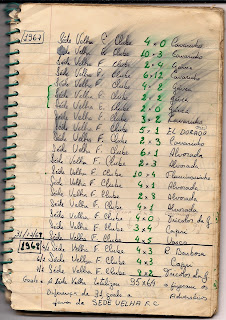 1967 Sede Velha F. Clube 4 x 0 Cavacinho
Sede Velha F. Clube 10 x 3 Cavacinho
Sede Velha F. Clube 2 x 4
Sede Velha F. Clube 6 x 12 Cavacinho
Sede Velha F. Clube 4 x 2
Sede Velha F. Clube 3 x 2
Sede Velha F. Clube 2 x 0
Sede Velha F. Clube 3 x 2 Cavacinho
Sede Velha F. Clube 5 x 1 EL DORADO
Sede Velha F. Clube 2 x 3 Cavacinho
Sede Velha F. Clube 6 x 1 Alvorada
Sede Velha F. Clube 2 x 3 Alvorada
Sede Velha F. Clube 10 x 4 Flamenguinho
Sede Velha F. Clube 4 x 3 Alvorada
Sede Velha F. Clube 2 x 3 Alvorada
Sede Velha F. Clube 4 x 1 Alvorada
Sede Velha F. Clube 4 x 0
Sede Velha F. Clube 3 x 4 Capri
31/12/67 Sede Velha F. Clube 4 x 5 Vasco
1968 Sede Velha F. Clube 4 x 3 R. Barbosa
Sede Velha F. Clube 4 x 3 Capri
Sede Velha F. Clube 8 x 2
Goals a Sede Velha 95 x 64
Diferença de 31 goals a
favor da SEDE VELHA F.C.